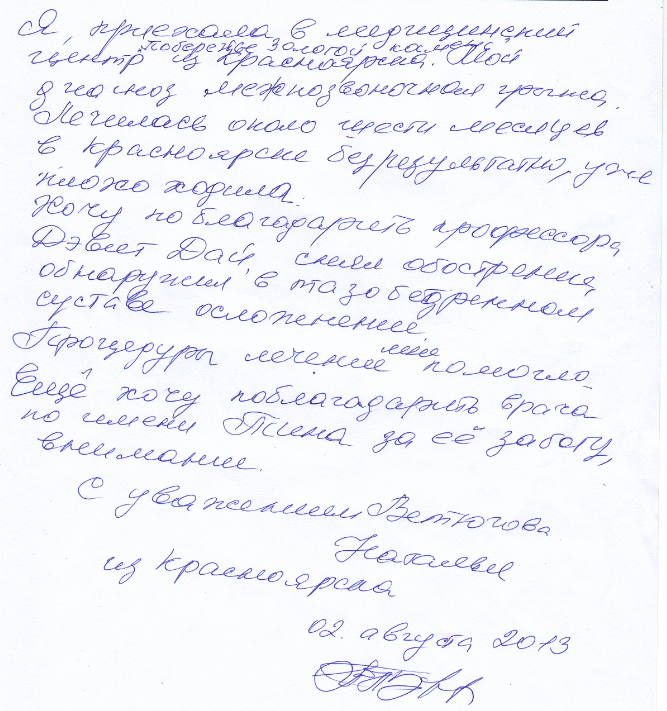 Я, приехала в медицинский
побережье Золотой камень
центр из Красноярска. Мой
диагноз межпозвоночная грыжа.
Лечилась около шести месяцев
в Красноярске безрезультатно, уже
плохо ходила.
Хочу поблагодарить профессора
Дэвит Дай, снял обострение,
обнаружил в тазобедренном
суставе осложнение
мне
Процедуры лечение помогло.
Ещё хочу поблагодарить врача
по имени Тина за её заботу,
внимание.
С уважением Ветюгова
Наталья
из Красноярска
02. августа 2013